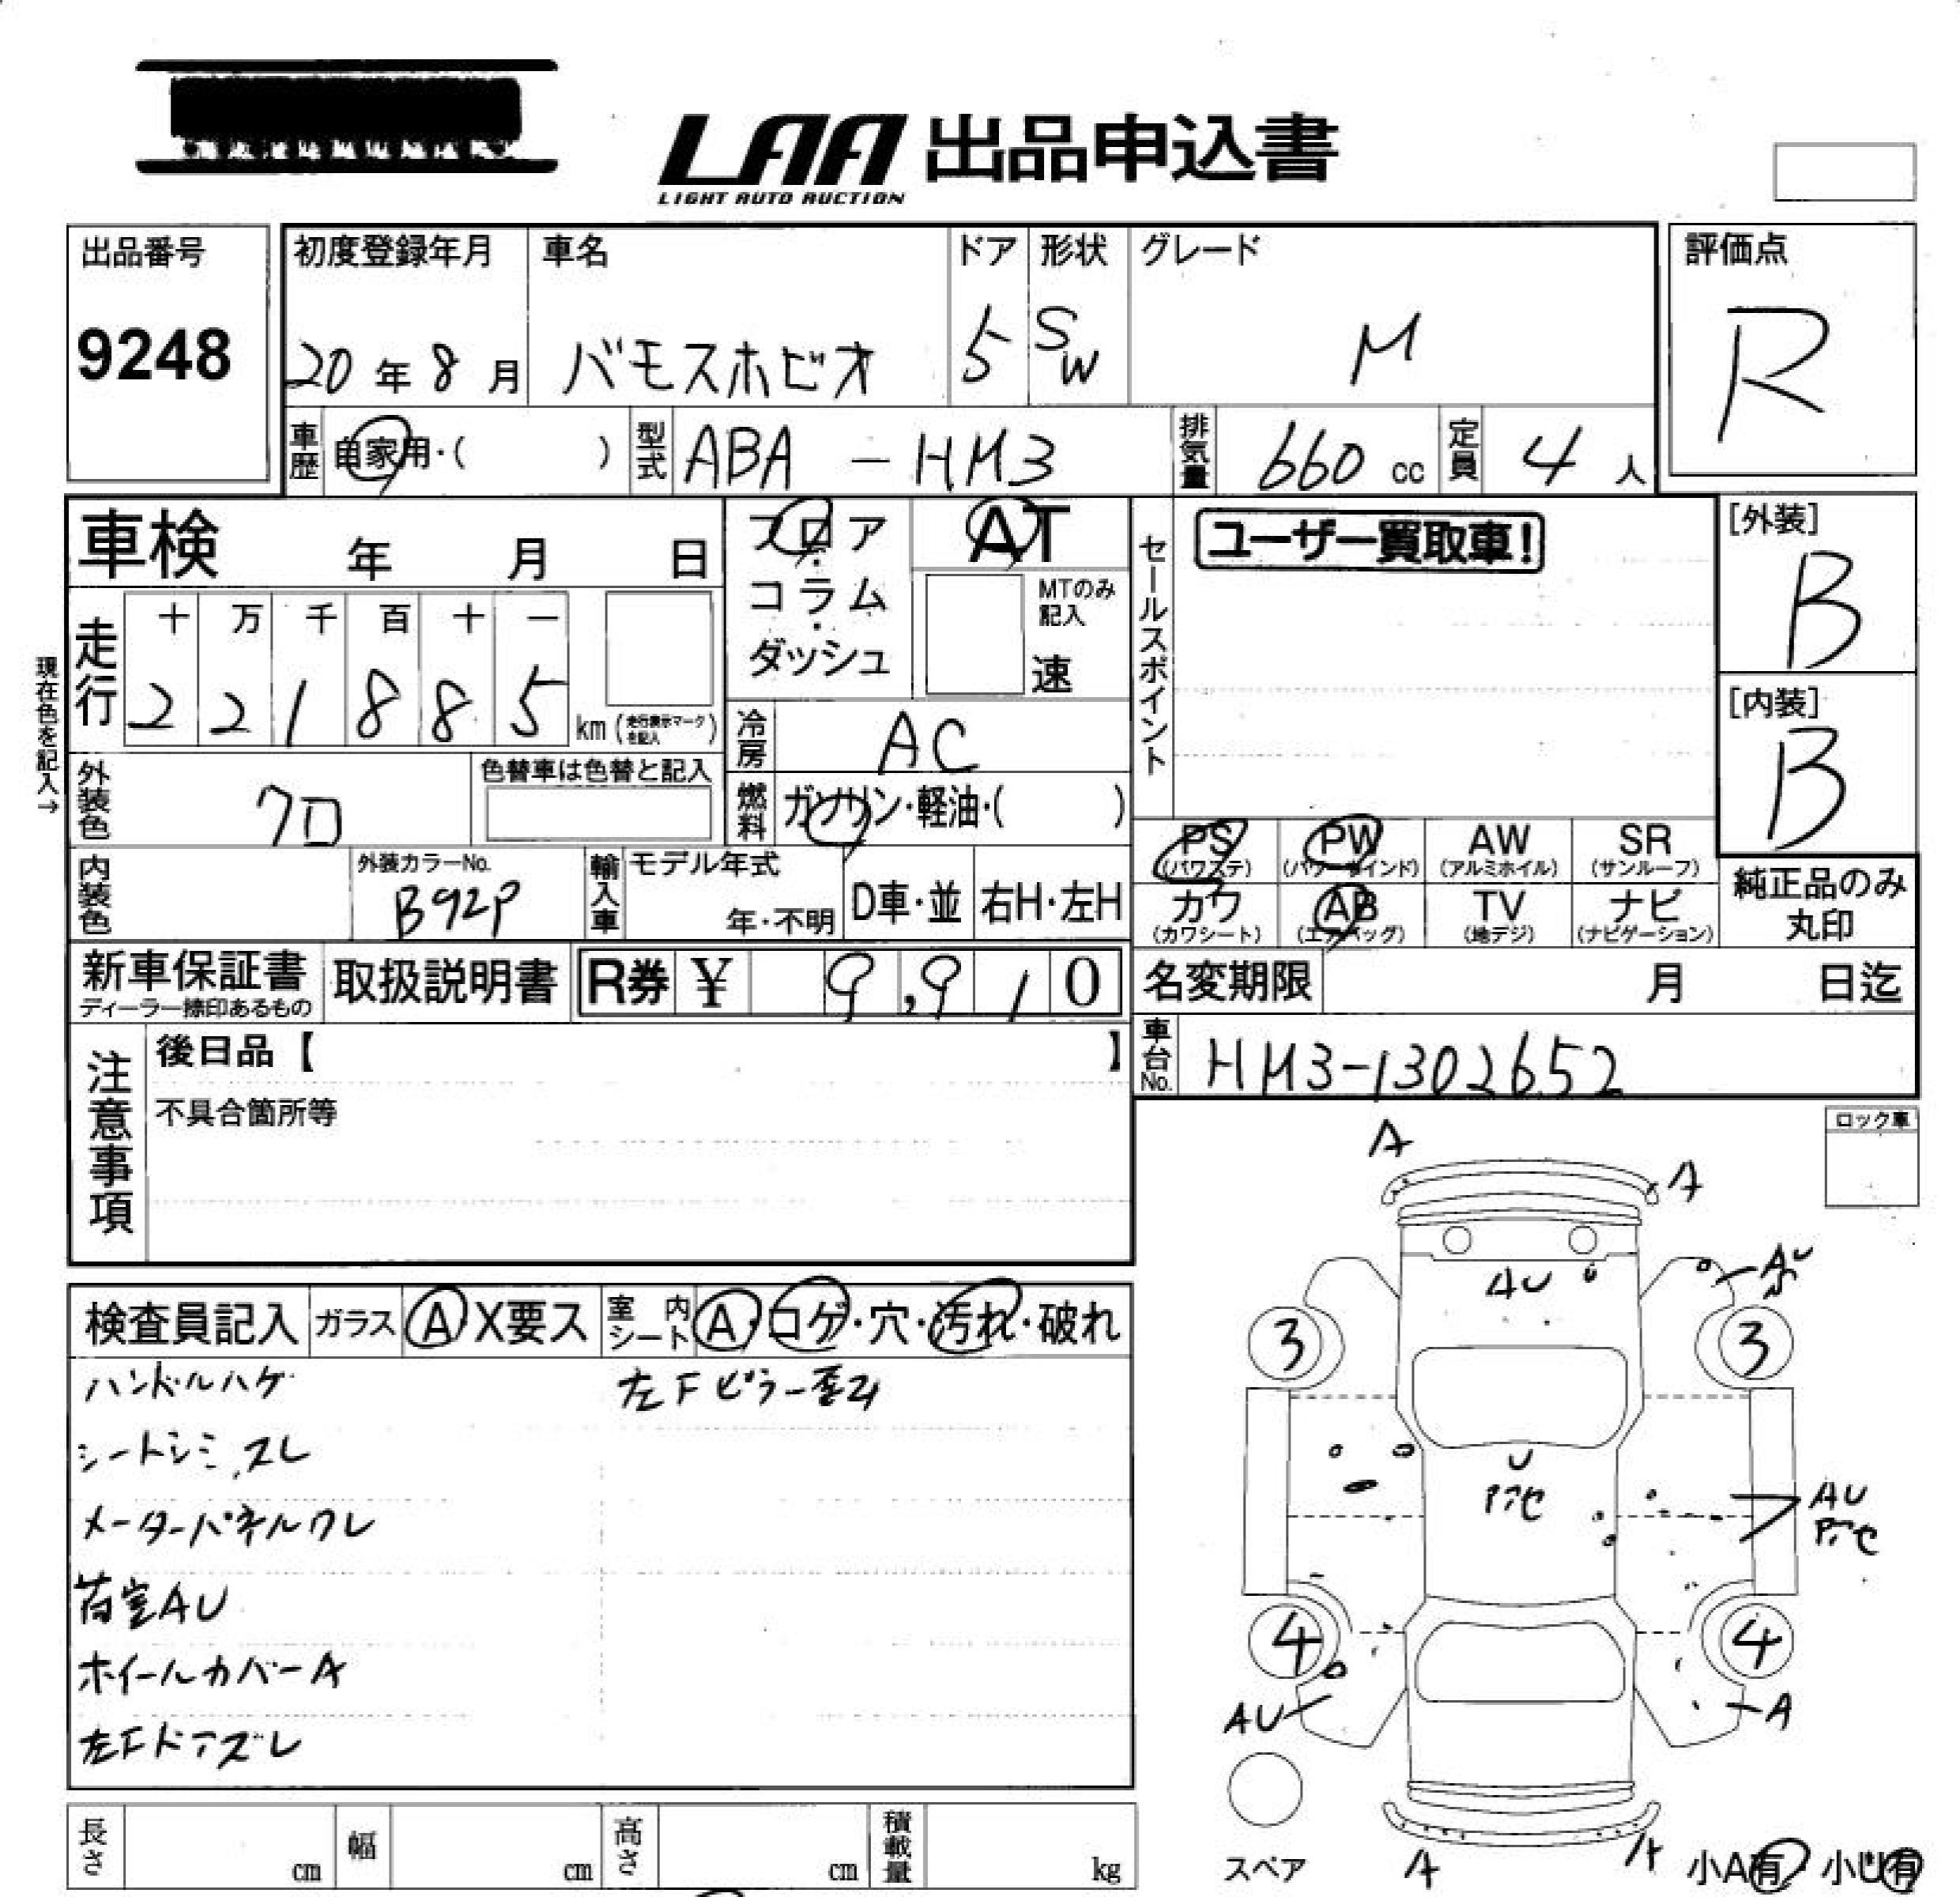 LAA 出品申込書
LIGHT AUTO AUCTION
出品番号
9248
初度登録年月
20年8月
車名
バモスホビオ
ドア
5
形状
SW
グレード
M
評価点
R
車歴
自家用・( )
型式
ABA-HM3
排気量
660 cc
定員
4人
車検 年 月 日
フロア・コラム・ダッシュ
AT
MTのみ記入
速
セールスポイント
ユーザー買取車!
[外装]
B
[内装]
B
現在色を記入→
走行
十 万 千 百 十 一
2 2 1 8 8 5
km (走行表示マークを記入)
冷房
AC
外装色
クロ
色替車は色替と記入
燃料
ガソリン・軽油・( )
PS AW PW SR
(パワステ) (パワーウインド) (アルミホイル) (サンルーフ)
カワ AB TV ナビ
(カワシート) (エアバッグ) (地デジ) (ナビゲーション)
純正品のみ丸印
内装色
外装カラーNo.
B92P
輸入車
モデル年式
年・不明
D車・並
右H・左H
新車保証書
ディーラー捺印あるもの
取扱説明書
R券 ¥ 9,910
名変期限 月 日迄
車台No.
HM3-1302652
注意事項
後日品【 】
不具合箇所等
ロック車
A
A
AU
AU
3
3
U
AU
4
4
AU
A
A
A
スペア
小A有 小U有
検査員記入
ガラス A X要ス
室内シート A・コゲ・穴・汚れ・破れ
ハンドルハゲ
左Fピラー歪み
シートシミ、スレ
メーターパネルワレ
荷室AU
ホイールカバーA
左Fドアズレ
長さ cm
幅 cm
高さ cm
積載量 kg